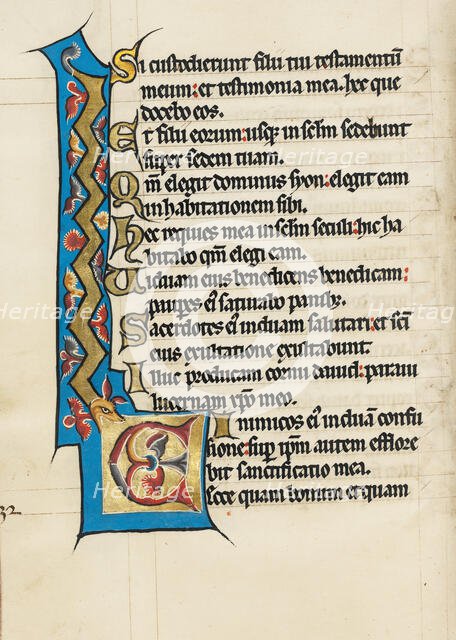 Si custodierunt filii tui testamentū
meum: et testimonia mea. hec que
docebo eos.
Et filii eorum: usq; in sclm sedebunt
super sedem tuam.
Qm elegit dominus syon: elegit eam
in habitationem sibi.
Hec requies mea in sclm seculi: hic ha
bitabo qm elegi eam.
Uiduam eius benedicens benedicam:
paupes ei saturabo panib;.
Sacerdotes ei induam salutari: et sci
eius exultatione exultabunt.
Illuc producam cornu dauid: paraui
lucernam xpo meo.
Inimicos ei induā confu
sione: sup ipm autem efflore
bit sanctificatio mea.
Ecce quam bonum et quam
132
Heritage
Heritage
Heritage
Heritage
Heritage
Heritage
Heritage
Heritage